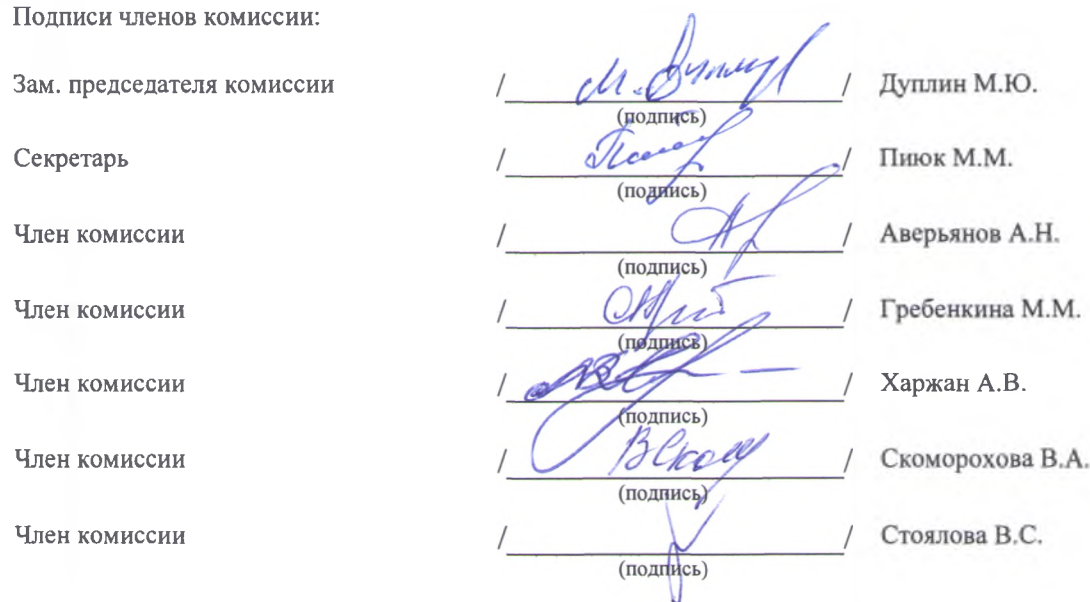 Подписи членов комиссии:
Зам. председателя комиссии / / Дуплин М.Ю.
(подпись)
Секретарь / / Пиюк М.М.
(подпись)
Член комиссии / / Аверьянов А.Н.
(подпись)
Член комиссии / / Гребенкина М.М.
(подпись)
Член комиссии / / Харжан А.В.
(подпись)
Член комиссии / / Скоморохова В.А.
(подпись)
Член комиссии / / Стоялова В.С.
(подпись)